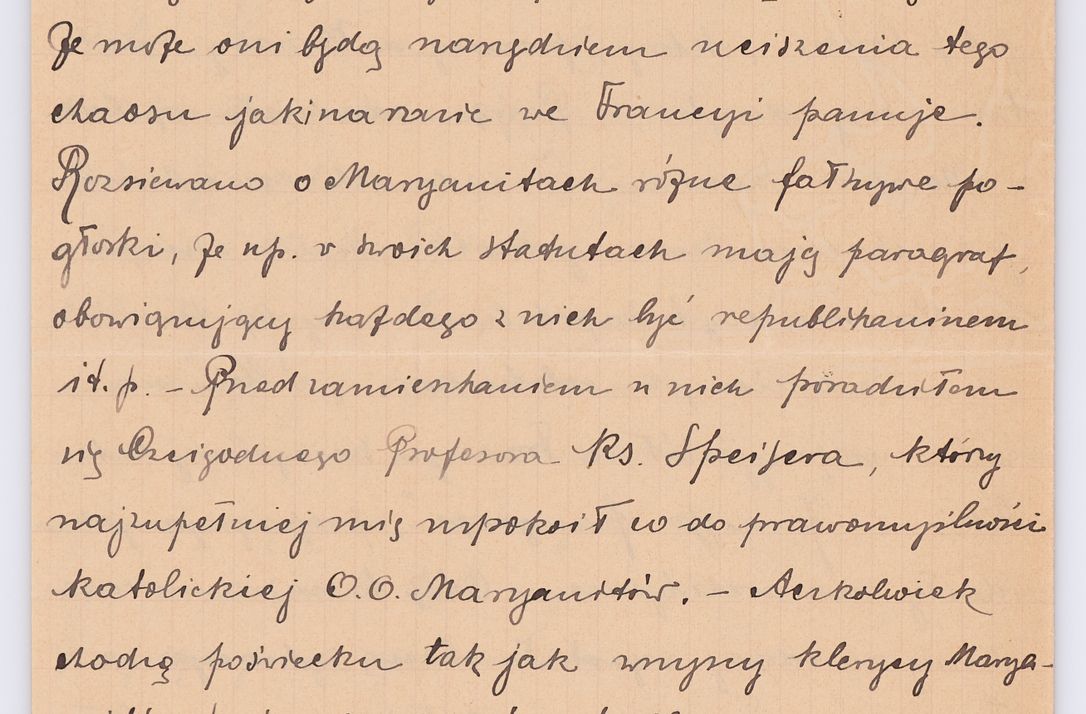 że może oni będą narzędziem uciszenia tego
chaosu jaki na razie we Francyi panuje.
Rozsiewano o Maryanitach różne fałszywe po-
głoski, że np. w swoich statutach mają paragraf,
obowiązujący każdego z nich być republikaninem
i t. p. - Przed zamieszkaniem u nich poradziłem
się Czcigodnego Profesora Ks. Speisera, który
najzupełniej mię uspokoił co do prawomyślności
katolickiej O.O. Maryanitów. - Aczkolwiek
chodzą po świecku tak jak wszyscy klerycy Marya-